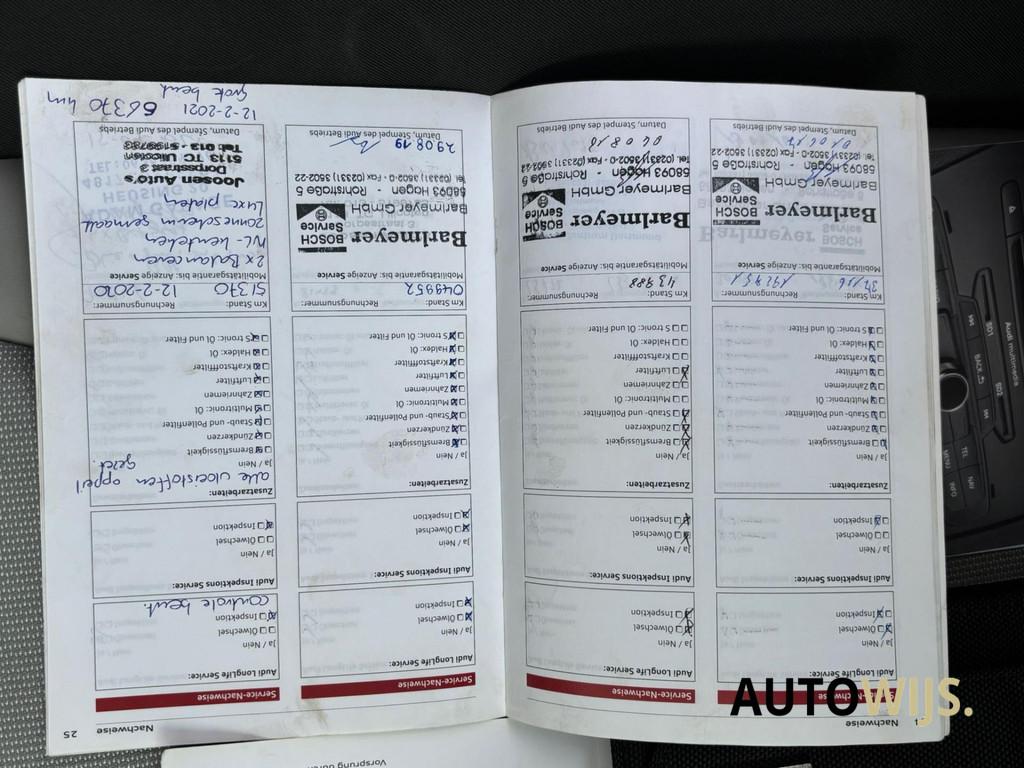 Nachweise
Service-Nachweise
Audi LongLife Service:
Ja / Nein
Ölwechsel
Inspektion
Audi Inspektions Service:
Ja / Nein
Ölwechsel
Inspektion
Zusatzarbeiten:
Ja / Nein
Bremsflüssigkeit
Zündkerzen
Staub- und Pollenfilter
Multitronic: Öl
Zahnriemen
Luftfilter
Kraftstofffilter
Haldex: Öl
S tronic: Öl und Filter
Km Stand:
Rechnungsnummer:
Mobilitätsgarantie bis: Anzeige Service
Barlmeyer
BOSCH
Service
Barlmeyer GmbH
58093 Hagen · Rohrstraße 5
Tel. (02331) 3502-0 · Fax (02331) 3502-22
Datum, Stempel des Audi Betriebs
Service-Nachweise
Audi LongLife Service:
Ja / Nein
Ölwechsel
Inspektion
Audi Inspektions Service:
Ja / Nein
Ölwechsel
Inspektion
Zusatzarbeiten:
Ja / Nein
Bremsflüssigkeit
Zündkerzen
Staub- und Pollenfilter
Multitronic: Öl
Zahnriemen
Luftfilter
Kraftstofffilter
Haldex: Öl
S tronic: Öl und Filter
Km Stand:
Rechnungsnummer:
43988
Mobilitätsgarantie bis: Anzeige Service
Barlmeyer
BOSCH
Service
Barlmeyer GmbH
58093 Hagen · Rohrstraße 5
Tel. (02331) 3502-0 · Fax (02331) 3502-22
06.08.18
Datum, Stempel des Audi Betriebs
Nachweise 25
Service-Nachweise
Audi LongLife Service:
Ja / Nein
Ölwechsel
Inspektion
Audi Inspektions Service:
Ja / Nein
Ölwechsel
Inspektion
Zusatzarbeiten:
Ja / Nein
Bremsflüssigkeit
Zündkerzen
Staub- und Pollenfilter
Multitronic: Öl
Zahnriemen
Luftfilter
Kraftstofffilter
Haldex: Öl
S tronic: Öl und Filter
Km Stand:
Rechnungsnummer:
049952
Mobilitätsgarantie bis: Anzeige Service
Barlmeyer
BOSCH
Service
Barlmeyer GmbH
58093 Hagen · Rohrstraße 5
Tel. (02331) 3502-0 · Fax (02331) 3502-22
29.08.19
Datum, Stempel des Audi Betriebs
Service-Nachweise
Audi LongLife Service:
Ja / Nein
Ölwechsel
Inspektion
controle beurt.
Audi Inspektions Service:
Ja / Nein
Ölwechsel
Inspektion
Zusatzarbeiten:
alle vloeistoffen op peil
Ja / Nein
Bremsflüssigkeit
Zündkerzen
Staub- und Pollenfilter
Multitronic: Öl
Zahnriemen
Luftfilter
Kraftstofffilter
Haldex: Öl
S tronic: Öl und Filter
Km Stand:
Rechnungsnummer:
51370 12-2-2020
Mobilitätsgarantie bis: Anzeige Service
2x Balanceren
NL kenteken
zonnescherm gemaakt
Luxe platen
Joosen Auto's
Dorpsstraat 3
5113 TC Ulicoten
Tel: 013 - 5199783
Datum, Stempel des Audi Betriebs
12-2-2021 56370 km
grote beurt
Audi multimedia
SD1
SD2
BACK
NAV
TEL
INFO
MENU
Vorsprung durch
AUTOWIJS.